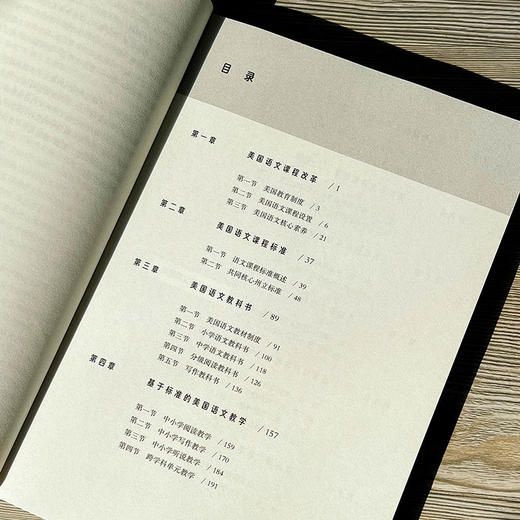 目 录
第一章 美国语文课程改革 / 1
第一节 美国教育制度 / 3
第二节 美国语文课程设置 / 6
第三节 美国语文核心素养 / 21
第二章 美国语文课程标准 / 37
第一节 语文课程标准概述 / 39
第二节 共同核心州立标准 / 48
第三章 美国语文教科书 / 89
第一节 美国语文教材制度 / 91
第二节 小学语文教科书 / 100
第三节 中学语文教科书 / 118
第四节 分级阅读教科书 / 126
第五节 写作教科书 / 136
第四章 基于标准的美国语文教学 / 157
第一节 中小学阅读教学 / 159
第二节 中小学写作教学 / 170
第三节 中小学听说教学 / 184
第四节 跨学科单元教学 / 191